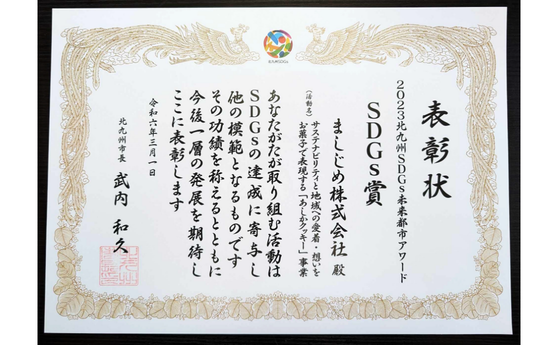 表彰状
2023北九州SDGs未来都市アワード
SDGs賞
ましじめ株式会社 殿
(活動名)
サステナビリティと地域への愛着・想いを
お菓子で表現する「あしかクッキー」事業
あなたがたが取り組む活動は
SDGsの達成に寄与し
他の模範となるものです
その功績を称えるとともに
今後一層の発展を期待し
ここに表彰します
令和六年三月一日
北九州市長 武内和久